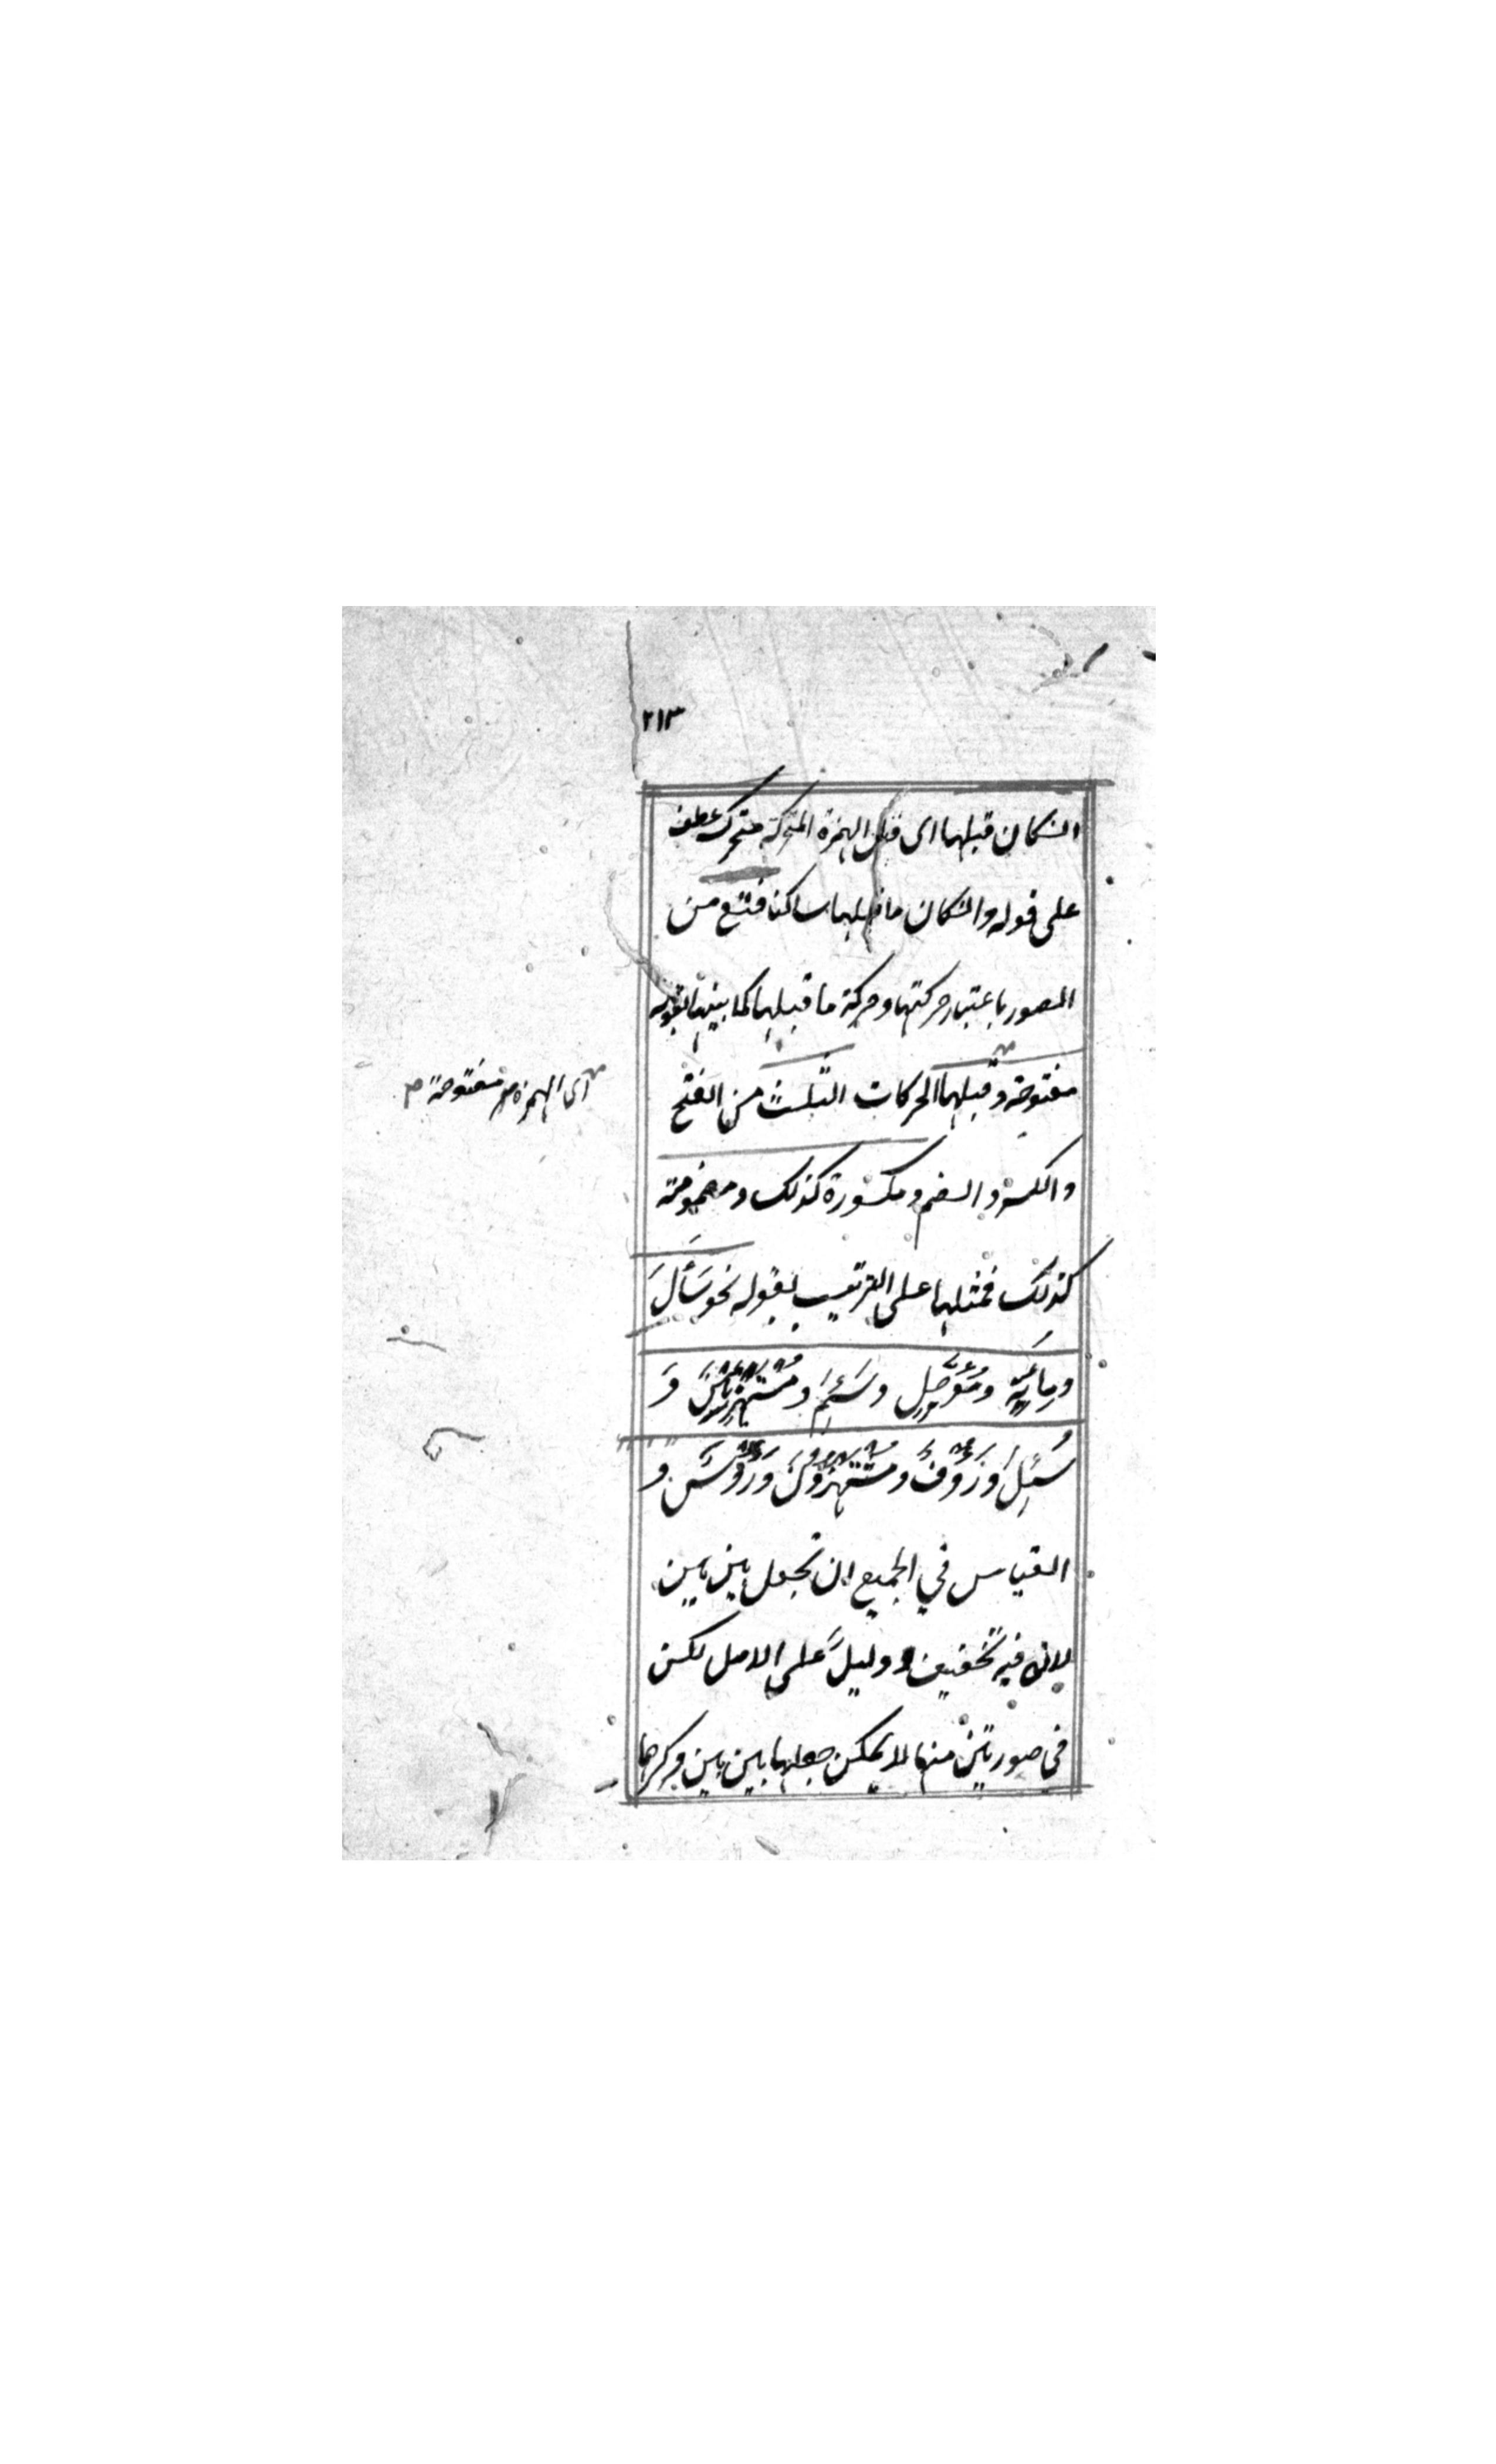 ٢١٣
ان كان قبلها اى قبل الهمزة المتحركة متحرك عطف
على قوله وان كان ما قبلها ساكنا فتسع من
الصور باعتبار حركتها وحركة ما قبلها كما بينها بقوله
مفتوحة وقبلها الحركات الثلث من الفتح
والكسر والضم ومكسورة كذلك ومضمومة
كذلك فمثلها على الترتيب بقوله نحو سَأَلَ
ومِائَية ومُؤَجَّل وسَئِمَ ومُسْتَهْزِئِينَ وَ
سُئِلَ وَرَؤُفَ ومُسْتَهْزِؤُنَ وَرُؤُس و
القياس في الجميع ان تجعل بين بين
لان فيه تخفيفا ودليلا على الاصل لكن
في صورتين منها لا يمكن جعلها بين بين وذكرها
اى الهمزة مفتوحة